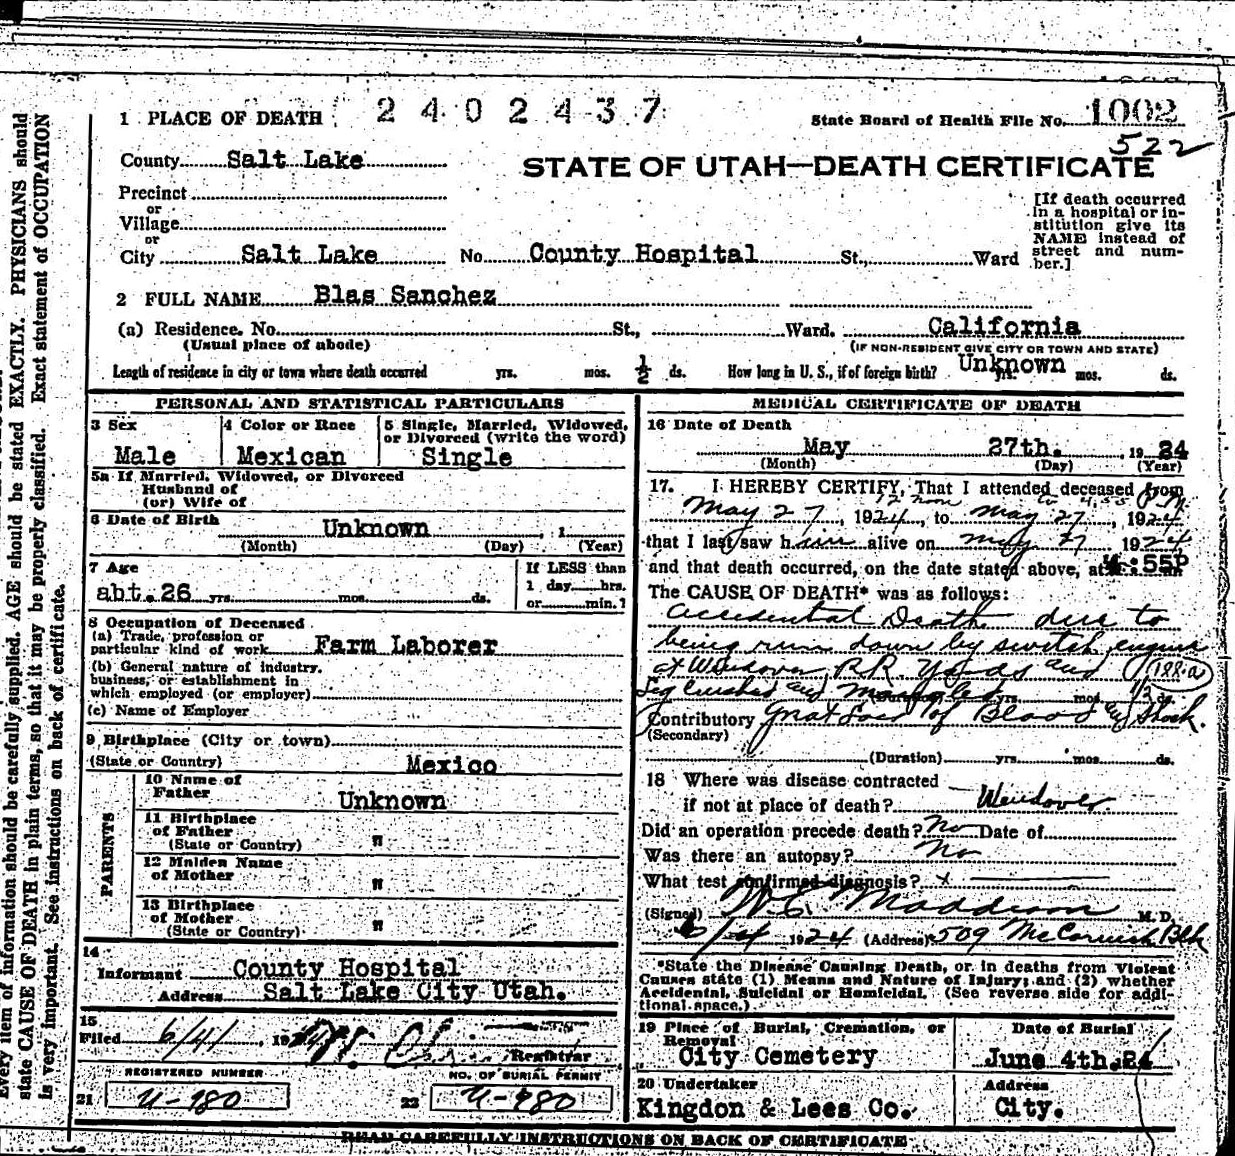 1 PLACE OF DEATH 2402437
State Board of Health File No. 1002
522
County Salt Lake
STATE OF UTAH—DEATH CERTIFICATE
Precinct
or
Village
or
City Salt Lake No. County Hospital St., Ward
[If death occurred
in a hospital or in-
stitution give its
NAME instead of
street and num-
ber.]
2 FULL NAME Blas Sanchez
(a) Residence. No. St., Ward. California
(Usual place of abode) (IF NON-RESIDENT GIVE CITY OR TOWN AND STATE)
Length of residence in city or town where death occurred yrs. mos. 1/2 ds. How long in U. S., if of foreign birth? Unknown yrs. mos. ds.
PERSONAL AND STATISTICAL PARTICULARS
3 Sex
Male
4 Color or Race
Mexican
5 Single, Married, Widowed,
or Divorced (write the word)
Single
5a If Married, Widowed, or Divorced
Husband of
(or) Wife of
6 Date of Birth Unknown , 1
(Month) (Day) (Year)
7 Age
abt. 26 yrs. mos. ds.
If LESS than
1 day hrs.
or min.?
8 Occupation of Deceased
(a) Trade, profession or
particular kind of work Farm Laborer
(b) General nature of industry,
business, or establishment in
which employed (or employer)
(c) Name of Employer
9 Birthplace (City or town)
(State or Country) Mexico
PARENTS
10 Name of
Father Unknown
11 Birthplace
of Father
(State or Country) "
12 Maiden Name
of Mother "
13 Birthplace
of Mother
(State or Country) "
14
Informant County Hospital
Address Salt Lake City Utah.
15
Filed 6/4 , 19
Registrar
REGISTERED NUMBER
21 U-980
NO. OF BURIAL PERMIT
22 U-980
MEDICAL CERTIFICATE OF DEATH
16 Date of Death
May 27th. , 19 24
(Month) (Day) (Year)
17. I HEREBY CERTIFY, That I attended deceased from
12 noon to 4,55 P.M.
May 27, 1924, to May 27, 1924
that I last saw him alive on May 27 1924
and that death occurred, on the date stated above, at 4:55P m
The CAUSE OF DEATH* was as follows:
Accidental Death due to
being run down by switch engine
at Wendover RR Yards and 188-a
Leg Crushed and Mangled yrs. mos. 1/3 ds.
Contributory Great Loss of Blood and Shock.
(Secondary)
(Duration) yrs. mos. ds.
18 Where was disease contracted
if not at place of death? Wendover
Did an operation precede death? No Date of
Was there an autopsy? No
What test confirmed diagnosis? x
(Signed) W.E. Maddison M.D.
1924 (Address) 509 McCornick Blk
*State the Disease Causing Death, or in deaths from Violent
Causes state (1) Means and Nature of Injury; and (2) whether
Accidental, Suicidal or Homicidal. (See reverse side for addi-
tional space.)
19 Place of Burial, Cremation, or
Removal
City Cemetery
Date of Burial
June 4th. 24
20 Undertaker
Kingdon & Lees Co.
Address
City.
READ CAREFULLY INSTRUCTIONS ON BACK OF CERTIFICATE
Every item of information should be carefully supplied. AGE should be stated EXACTLY. PHYSICIANS should
state CAUSE OF DEATH in plain terms, so that it may be properly classified. Exact statement of OCCUPATION
is very important. See instructions on back of certificate.